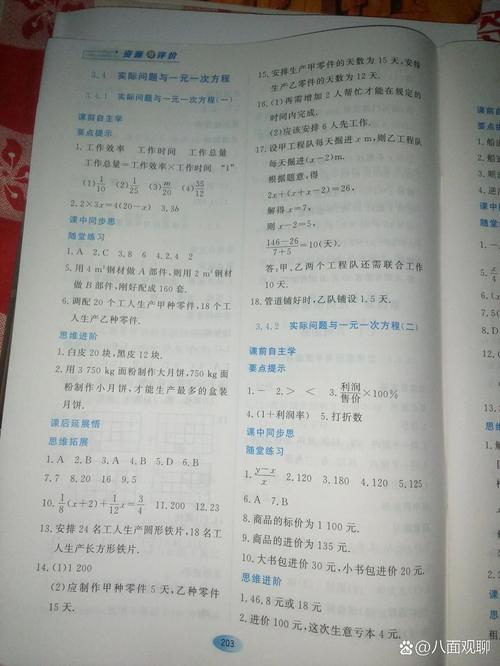 资源与评价
3.4 实际问题与一元一次方程
3.4.1 实际问题与一元一次方程(一)
课前自主学
要点提示
1.工作效率 工作时间 工作总量
工作总量=工作效率×工作时间 "1"
(1)1/10 (2)1/25 (3)m/20 (4)35/12
2.2×3x=4(20-x) 3.3b
课中同步思
随堂练习
1.A 2.C 3.8 6 4.2,4 2
5.用4 m³钢材做A部件,则用2 m³钢材
做B部件,刚好配成160套.
6.调配20个工人生产甲种零件,18个工
人生产乙种零件.
思维进阶
1.白皮20块,黑皮12块.
2.用3 750 kg面粉制作大月饼,750 kg面
粉制作小月饼,才能生产最多的盒装
月饼.
课后延展悟
思维拓展
1.A 2.B 3.A 4.B 5.D 6.B
7.7 8.20 16 9.5
10.1/8(x+2)+1/12x=3/4 11.200 12.23
13.安排24名工人生产圆形铁片,18名工
人生产长方形铁片.
14.(1)1 200
(2)应制作甲种零件5天,乙种零件
15天.
15.安排生产甲零件的天数为15天,安排
生产乙零件的天数为12天.
16.(1)再需增加2人帮忙才能在规定的
时间内完成.
(2)应该安排6人先工作.
17.设甲工程队每天掘进x m,则乙工程队
每天掘进(x-2)m.
根据题意,得
2x+(x+x-2)=26,
解得x=7,
则x-2=5,
146-26/7+5=10(天).
答:甲、乙两个工程队还需联合工作
10天.
18.管道铺好时,乙队铺设1.5天.
3.4.2 实际问题与一元一次方程(二)
课前自主学
要点提示
1.- 2.> < 3.利润/售价×100%
4.(1+利润率) 5.打折数
课中同步思
随堂练习
1.y-x/x 2.120 3.180 4.120 5.125
6.A 7.B
8.商品的标价为1 100元.
9.商品的进价为135元.
10.大书包进价30元,小书包进价20元.
思维进阶
1.46.8元或18元
2.进价100元,这次生意亏本4元.
203
头条 @八面观聊